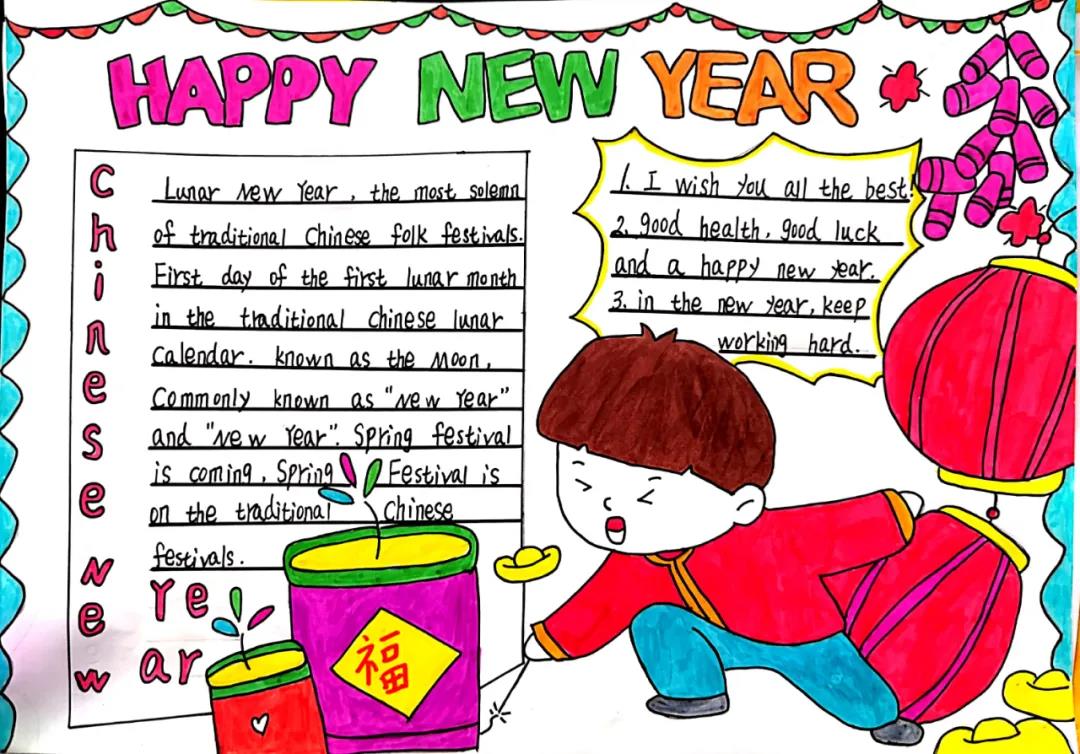 HAPPY NEW YEAR
Chinese New
Year
Lunar New Year, the most solemn
of traditional Chinese folk festivals.
First day of the first lunar month
in the traditional chinese lunar
Calendar. known as the Moon,
Commonly known as "New Year"
and "New Year". Spring festival
is coming. Spring Festival is
on the traditional Chinese
festivals.
1. I wish you all the best!
2. good health, good luck
and a happy new year.
3. in the new year, keep
working hard.
福